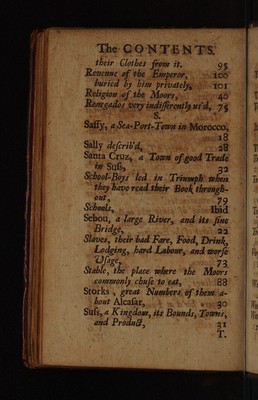 The CONTENTS.
their Clothes from it. 95
Revenue of the Emperor, 100
buried by him privately, 101
Religion of the Moors, 40
Renegados very indifferently us'd, 75
S.
Saffy, a Sea-Port-Town in Morocco,
18
Sally describ'd, 28
Santa Cruz, a Town of good Trade
in Suss, 32
School-Boys led in Triumph when
they have read their Book through-
out, 79
Schools, Ibid
Sebou, a large River, and its fine
Bridge, 22
Slaves, their bad Fare, Food, Drink,
Lodging, hard Labour, and worse
Usage, 73
Stable, the place where the Moors
commonly chuse to eat, 88
Storks, great Numbers of them a-
bout Alcasar, 30
Suss, a Kingdom, its Bounds, Towns,
and Product, 31
T.